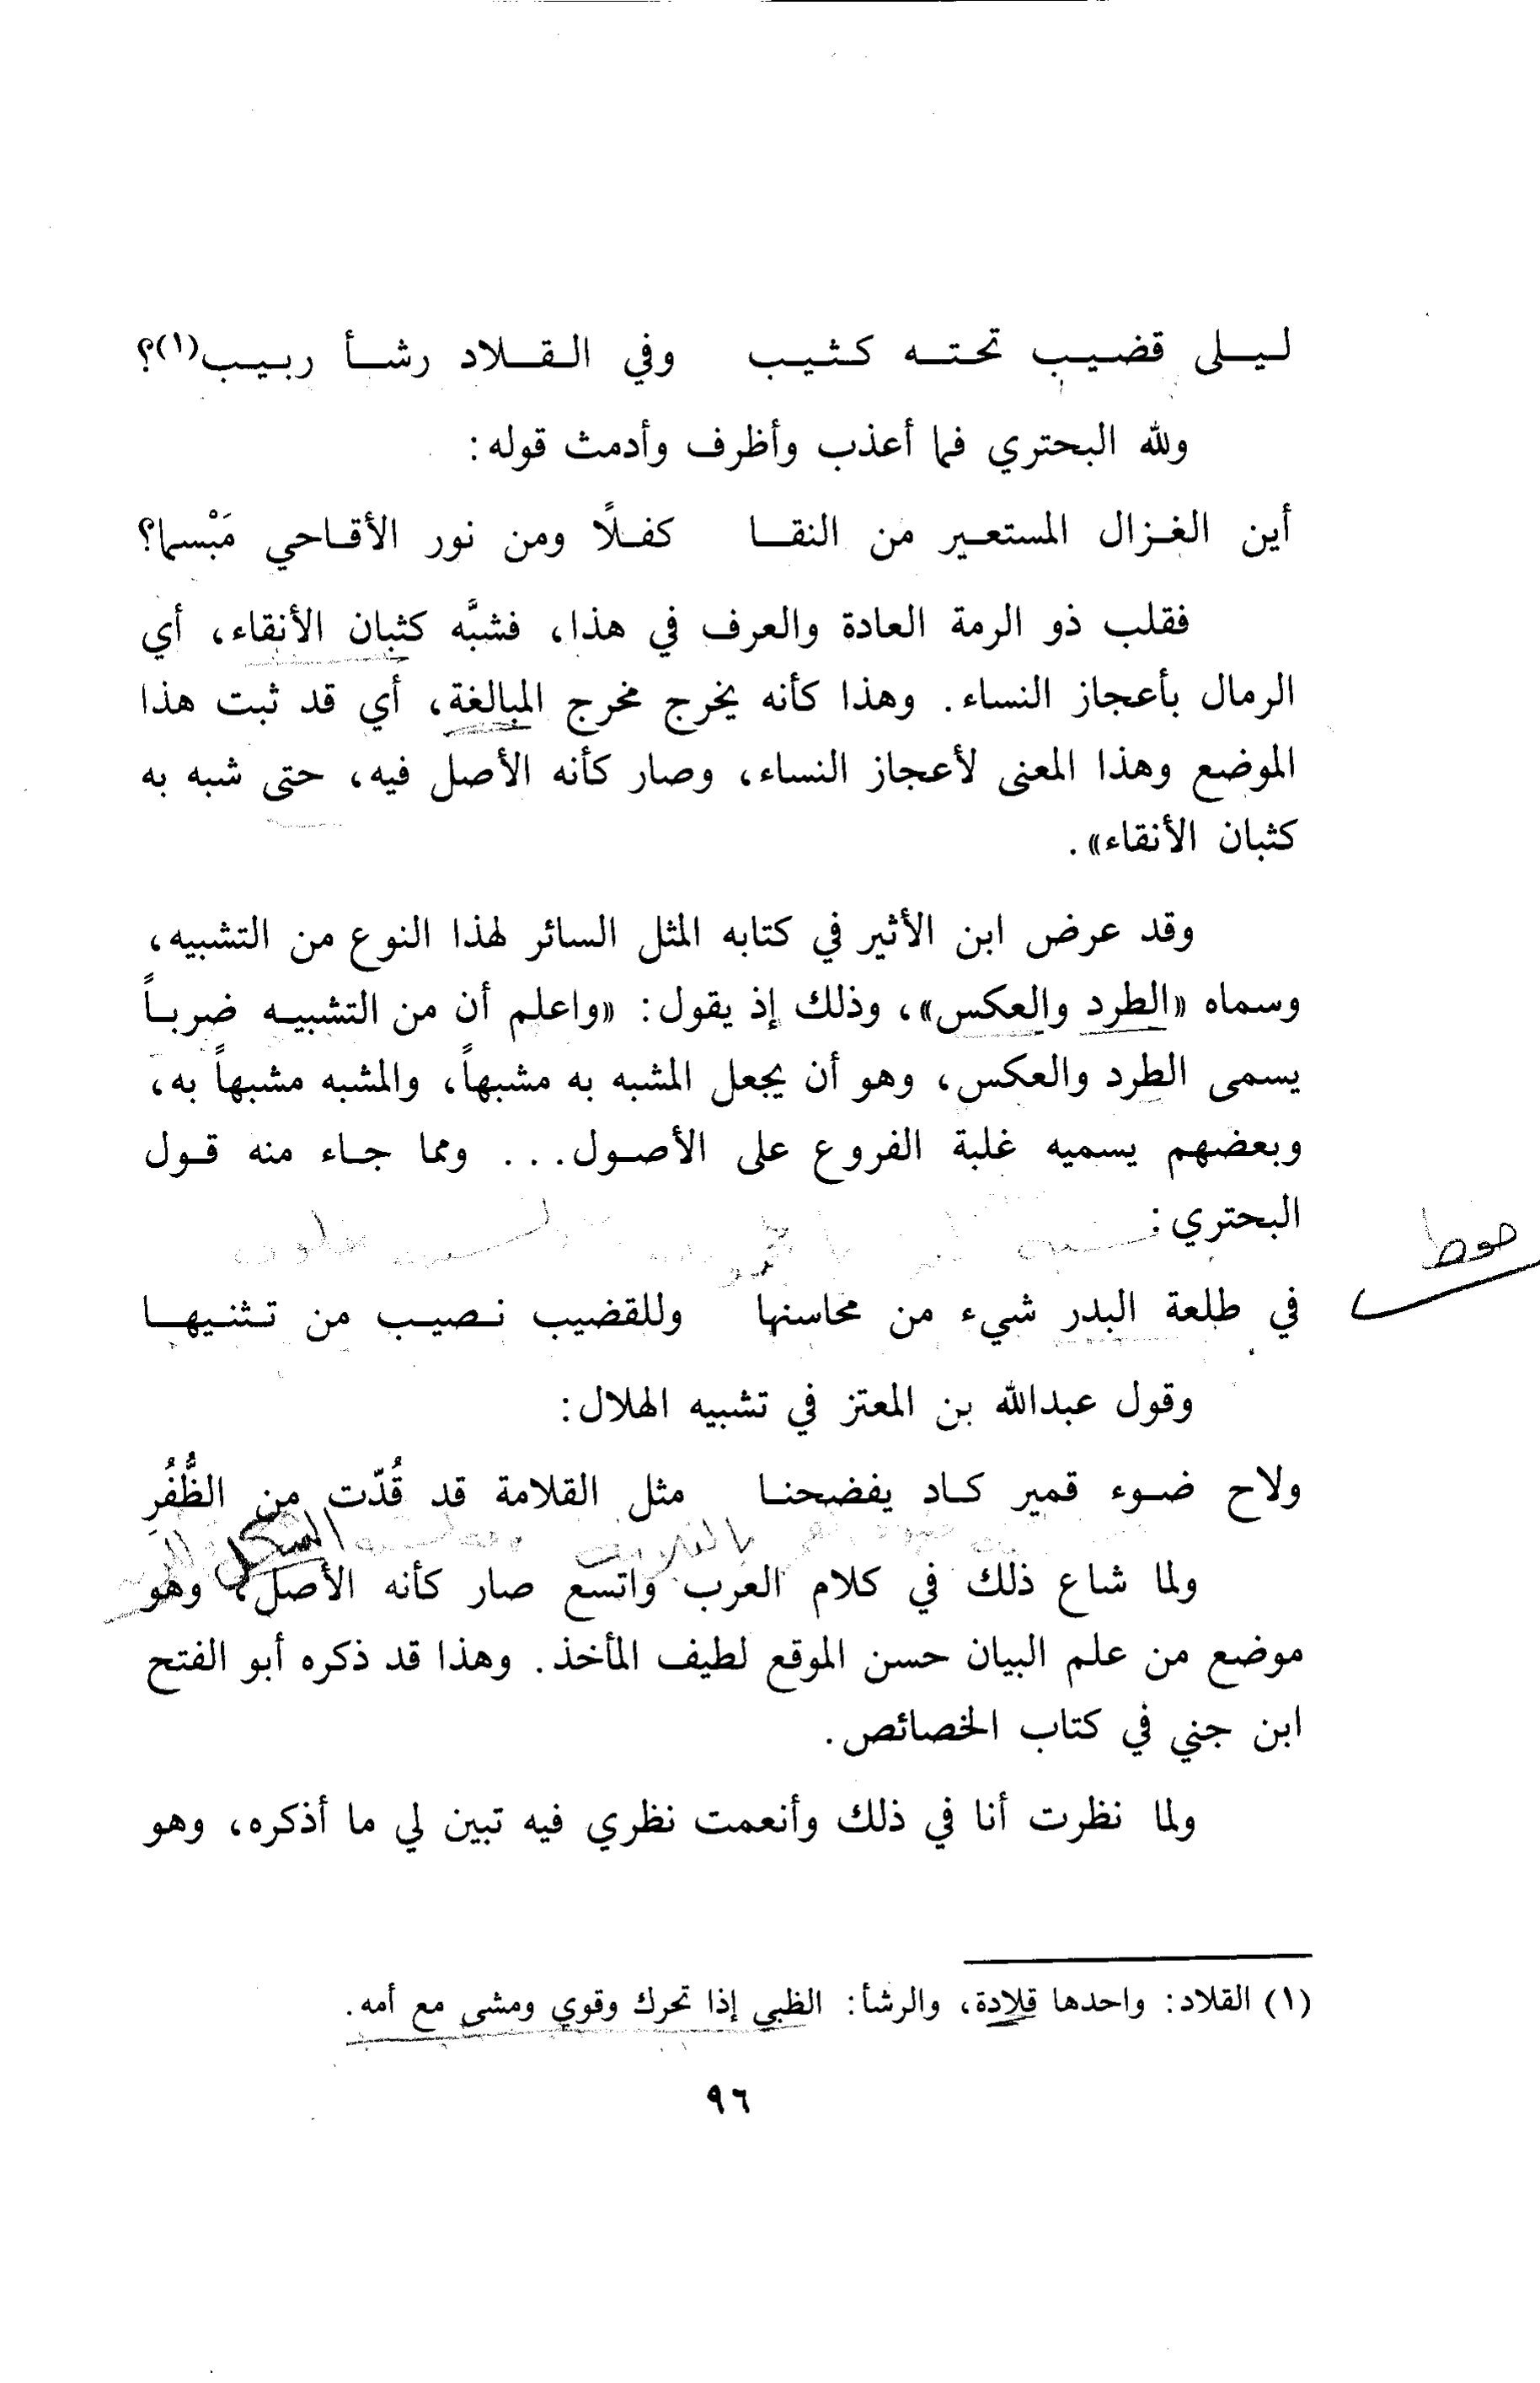 ليلى قضيب تحته كثيب وفي القلاد رشأ ربيب(١)؟
ولله البحتري فما أعذب وأظرف وأدمث قوله:
أين الغزال المستعير من النقا كفلًا ومن نور الأقاحي مَبْسما؟
فقلب ذو الرمة العادة والعرف في هذا، فشبَّه كثبان الأنقاء، أي
الرمال بأعجاز النساء. وهذا كأنه يخرج مخرج المبالغة، أي قد ثبت هذا
الموضع وهذا المعنى لأعجاز النساء، وصار كأنه الأصل فيه، حتى شبه به
كثبان الأنقاء».
وقد عرض ابن الأثير في كتابه المثل السائر لهذا النوع من التشبيه،
وسماه «الطرد والعكس»، وذلك إذ يقول: «واعلم أن من التشبيه ضرباً
يسمى الطرد والعكس، وهو أن يجعل المشبه به مشبهاً، والمشبه مشبهاً به،
وبعضهم يسميه غلبة الفروع على الأصول... ومما جاء منه قول
البحتري:
في طلعة البدر شيء من محاسنها وللقضيب نصيب من تثنيها
وقول عبدالله بن المعتز في تشبيه الهلال:
ولاح ضوء قمير كاد يفضحنا مثل القلامة قد قُدّت من الظُّفُرِ
الشكل
ولما شاع ذلك في كلام العرب واتسع صار كأنه الأصل، وهو
موضع من علم البيان حسن الموقع لطيف المأخذ. وهذا قد ذكره أبو الفتح
ابن جني في كتاب الخصائص.
ولما نظرت أنا في ذلك وأنعمت نظري فيه تبين لي ما أذكره، وهو
(١) القلاد: واحدها قلادة، والرشأ: الظبي إذا تحرك وقوي ومشى مع أمه.
٩٦